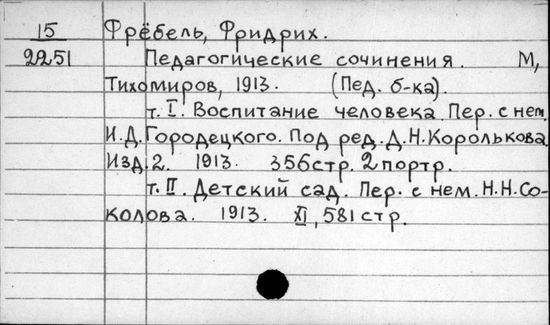 15 Фрёбель, Фридрих.
2251 Педагогические сочинения. М,
Тихомиров, 1913. (Пед. б-ка).
т. I. Воспитание человека. Пер. с нем.
И.Д. Городецкого. Под ред. Д.Н. Королькова.
Изд. 2. 1913. 356 стр. 2 портр.
т. II. Детский сад. Пер. с нем. Н.Н. Со-
колова. 1913. XI, 581 стр.